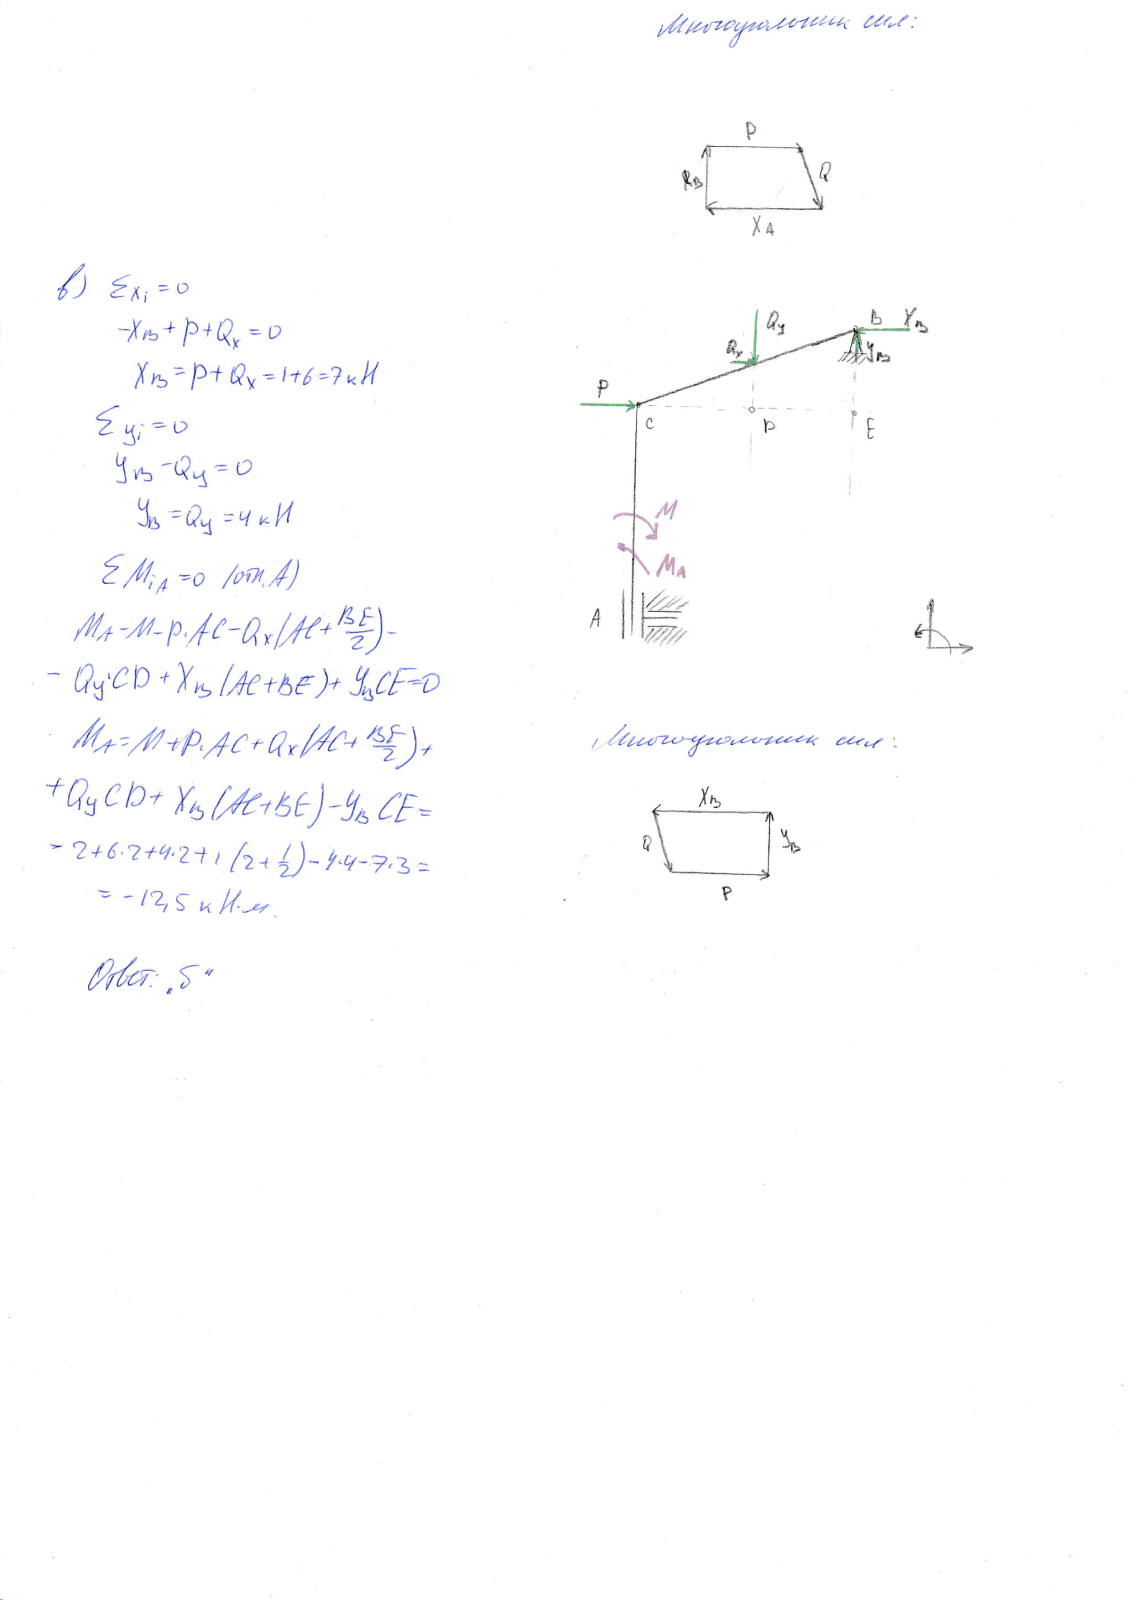 Многоугольник сил:
P
R_B
Q
X_A
в) Σx_i=0
-X_B+P+Q_x=0
X_B=P+Q_x=1+6=7кН
Σy_i=0
y_B-Q_y=0
y_B=Q_y=4кН
ΣM_iA=0 (отн. A)
M_A-M-P·AC-Q_x(AC+BE/2)-
-Q_y·CD+X_B(AC+BE)+y_B CE=0
M_A=M+P·AC+Q_x(AC+BE/2)+
+Q_y CD+X_B(AC+BE)-y_B CE=
=2+6·2+4·2+1(2+1/2)-4·4-7·3=
=-12,5 кН·м.
Ответ: „б“
Q_y
B
X_B
Q_x
y_B
P
C
D
E
M
M_A
A
Многоугольник сил:
X_B
Q
y_B
P